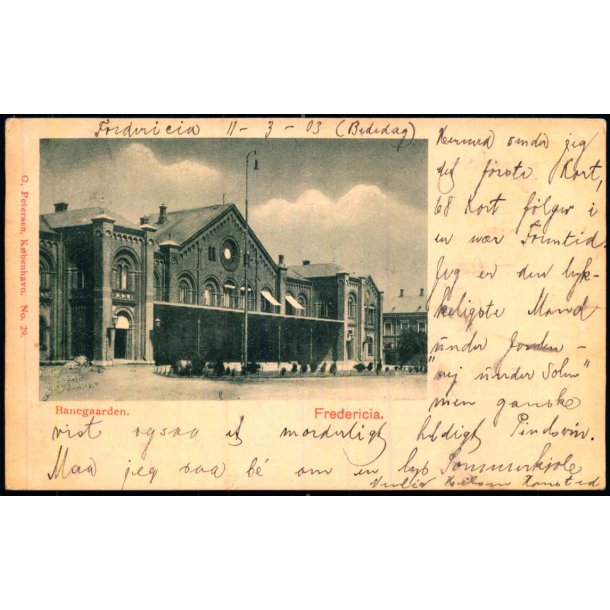 Fredericia 11 - 3 - 03 (Bededag)
Hermed sender jeg
det første Kort,
68 Kort følger i
en nær Fremtid.
Jeg er den lyk-
keligste Mand
under Jorden -
"nej under Solen"
men ganske
vist ogsaa et morderligt heldigt Pindsvin.
Maa jeg saa bé om en lys Sommerkjole
Venlig Hilsen
O. Petersen, København. No. 29.
Banegaarden.
Fredericia.